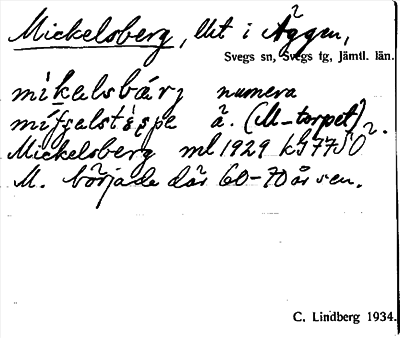 Mickelsberg, lht i Äggen,
Svegs sn, Svegs tg, Jämtl. län.
mikalsbarj numera
ä. (M-torpet).
Mickelsberg ml 1929 kG77SO².
M. började där 60-70 år sen.
C. Lindberg 1934.